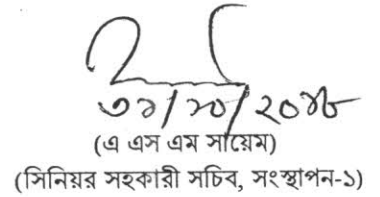 ৩১/১০/২০১৮
(এ এস এম সায়েম)
(সিনিয়র সহকারী সচিব, সংস্থাপন-১)